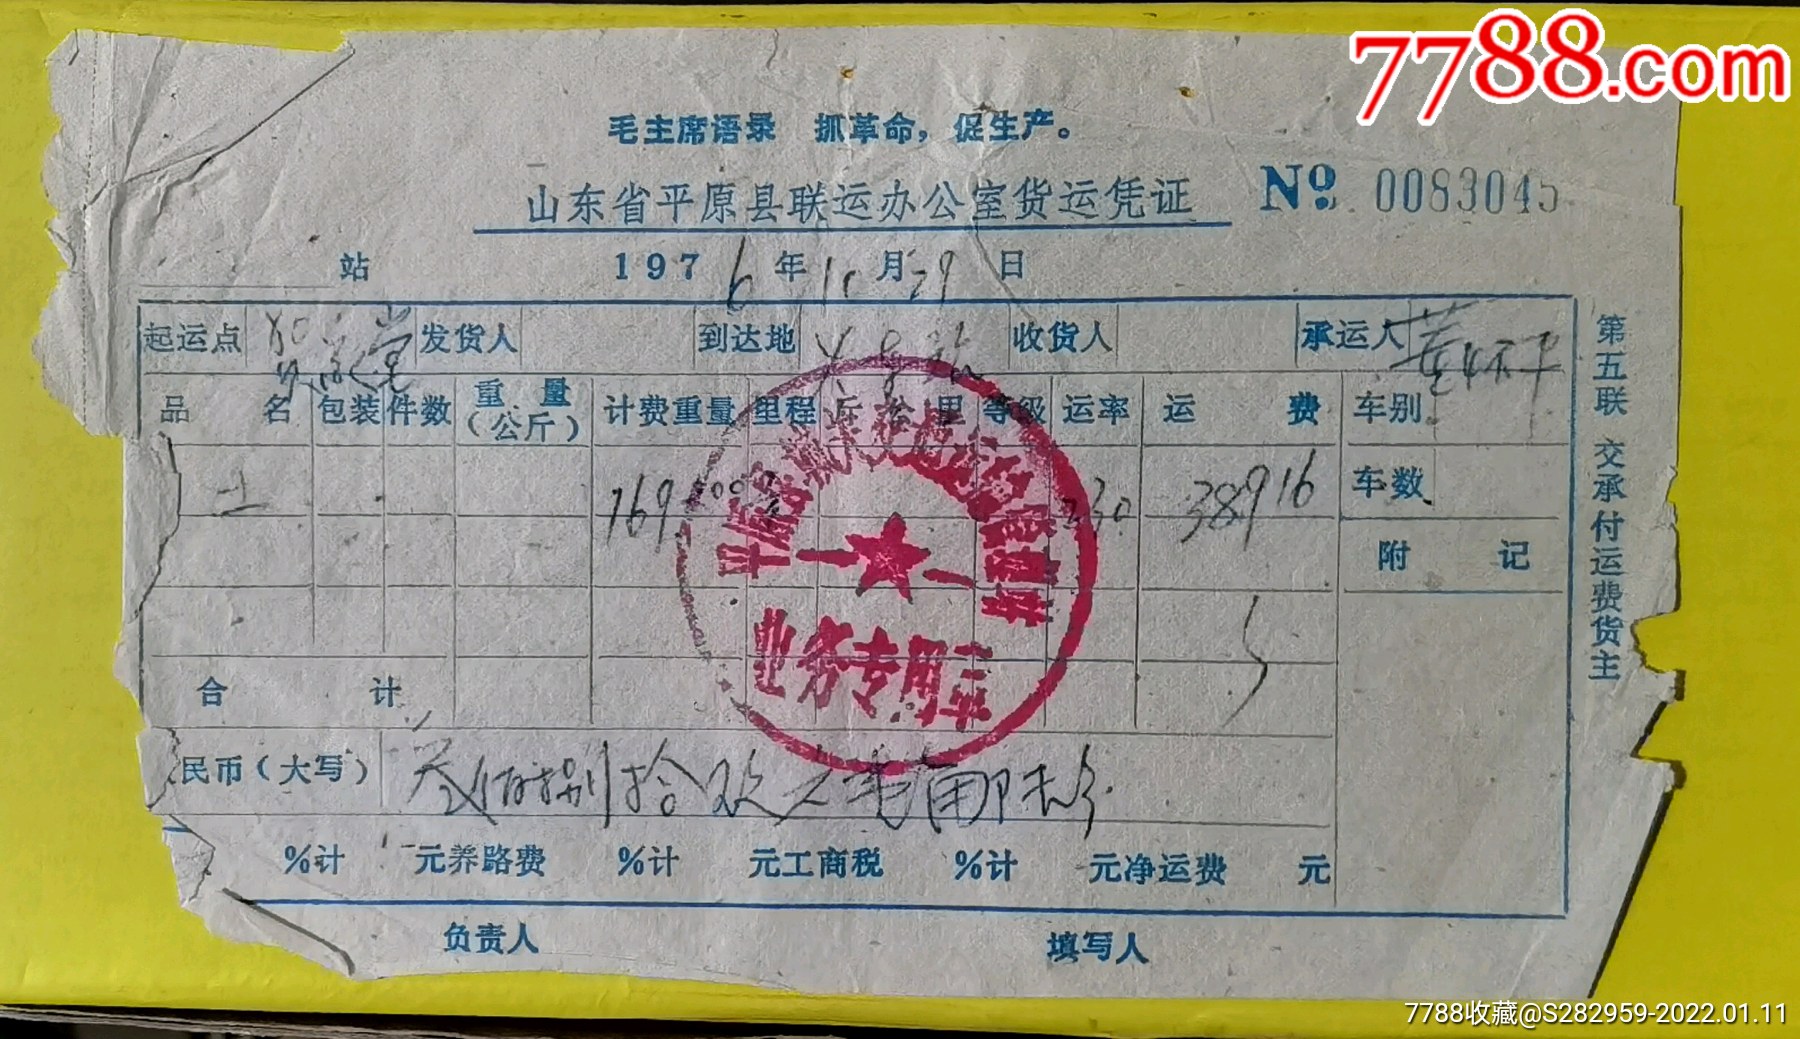 7788.com
毛主席语录 抓革命，促生产。
山东省平原县联运办公室货运凭证 № 0083045
站 1976年10月29日
起运点 发货人 到达地 收货人 承运人
品名 包装 件数 重量（公斤） 计费重量 里程 斤公里 等级 运率 运费 车别
土 769 38916 车数
附记
合计
民币（大写） 叁佰捌拾玖元壹角陆分
%计 元养路费 %计 元工商税 %计 元净运费 元
负责人 填写人
第五联 交承付运费货主
业务专用章
7788收藏@S282959-2022.01.11